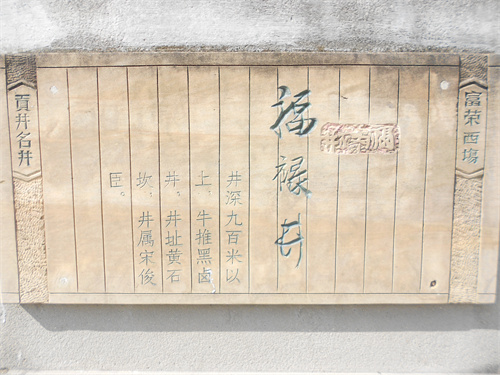 富荣西場
福禄井
井深九百米以
上。牛推黑卤
井。井址黄石
坎。井属宋俊
臣。
貢井名井